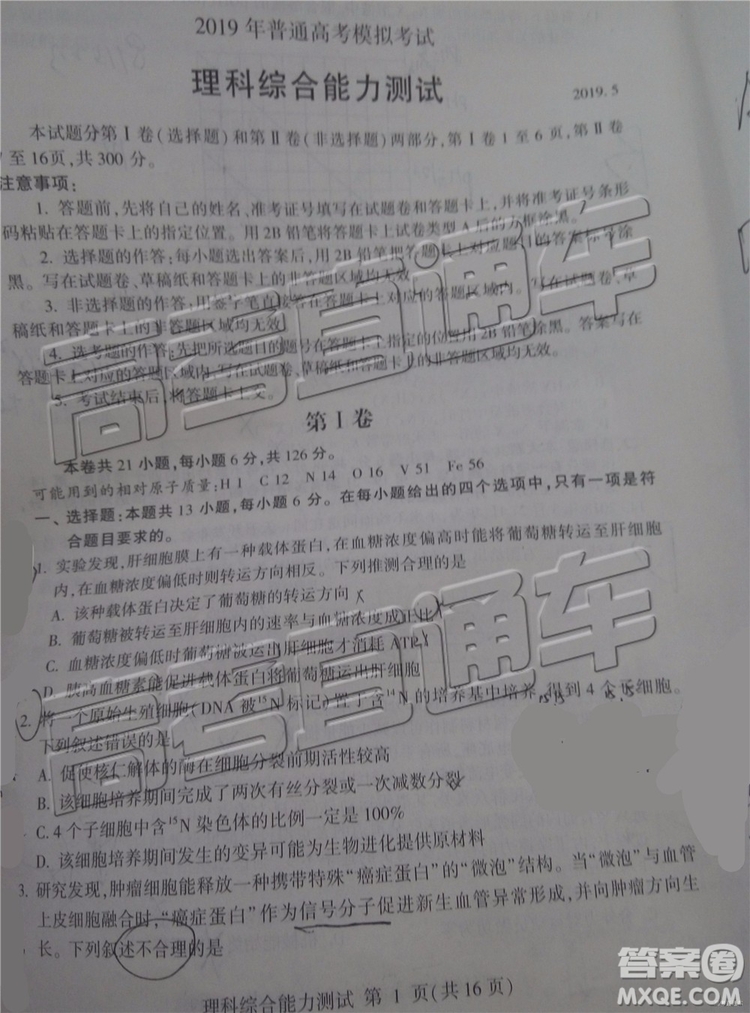 2019年普通高考模拟考试
理科综合能力测试
2019.5
本试题分第Ⅰ卷(选择题)和第Ⅱ卷(非选择题)两部分,第Ⅰ卷1至6页,第Ⅱ卷
至16页,共300分。
注意事项:
1. 答题前,先将自己的姓名、准考证号填写在试题卷和答题卡上,并将准考证号条形
码粘贴在答题卡上的指定位置。用2B铅笔将答题卡上试卷类型A后的方框涂黑。
2. 选择题的作答:每小题选出答案后,用2B铅笔把答题卡上对应题目的答案标号涂
黑。写在试题卷、草稿纸和答题卡上的非答题区域均无效。
3. 非选择题的作答:用签字笔直接答在答题卡上对应的答题区域内。写在试题卷、草
稿纸和答题卡上的非答题区域均无效。
4. 选考题的作答:先把所选题目的题号在答题卡上指定的位置用2B铅笔涂黑。答案写在
答题卡上对应的答题区域内,写在试题卷、草稿纸和答题卡上的非答题区域均无效。
5. 考试结束后,将答题卡上交。
第Ⅰ卷
本卷共21小题,每小题6分,共126分。
可能用到的相对原子质量:H 1 C 12 N 14 O 16 V 51 Fe 56
一、选择题:本题共13小题,每小题6分。在每小题给出的四个选项中,只有一项是符
合题目要求的。
1. 实验发现,肝细胞膜上有一种载体蛋白,在血糖浓度偏高时能将葡萄糖转运至肝细胞
内,在血糖浓度偏低时则转运方向相反。下列推测合理的是
A. 该种载体蛋白决定了葡萄糖的转运方向
B. 葡萄糖被转运至肝细胞内的速率与血糖浓度成正比
C. 血糖浓度偏低时葡萄糖被运出肝细胞才消耗ATP
D. 胰高血糖素能促进载体蛋白将葡萄糖运出肝细胞
2. 将一个原始生殖细胞(DNA被¹⁵N标记)置于含¹⁴N的培养基中培养,得到4个子细胞。
下列叙述错误的是
A. 促使核仁解体的酶在细胞分裂前期活性较高
B. 该细胞培养期间完成了两次有丝分裂或一次减数分裂
C. 4个子细胞中含¹⁵N染色体的比例一定是100%
D. 该细胞培养期间发生的变异可能为生物进化提供原材料
3. 研究发现,肿瘤细胞能释放一种携带特殊“癌症蛋白”的“微泡”结构。当“微泡”与血管
上皮细胞融合时,“癌症蛋白”作为信号分子促进新生血管异常形成,并向肿瘤方向生
长。下列叙述不合理的是
理科综合能力测试 第 1 页(共16页)
高考直通车
高考直通车
答案圈
MXQE.COM